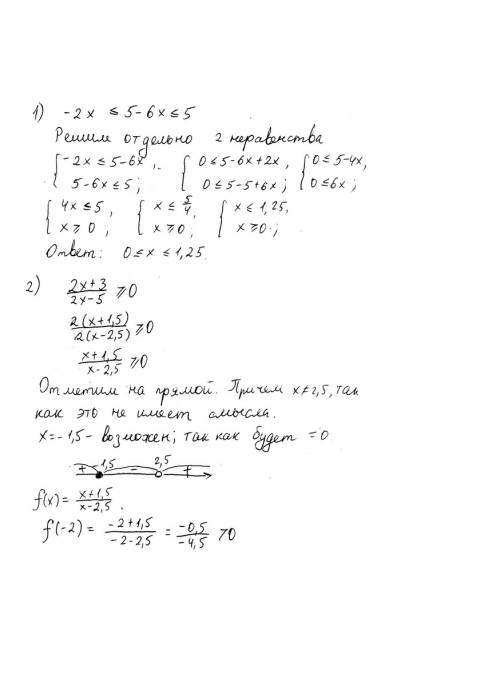 1) -2x ≤ 5-6x ≤ 5
Решим отдельно 2 неравенства
{ -2x ≤ 5-6x, 5-6x ≤ 5; { 0 ≤ 5-6x+2x, 0 ≤ 5-5+6x; { 0 ≤ 5-4x, 0 ≤ 6x;
{ 4x ≤ 5, x ≥ 0; { x ≤ 5/4, x ≥ 0; { x ≤ 1,25, x ≥ 0;
Ответ: 0 ≤ x ≤ 1,25.
2) (2x+3)/(2x-5) ≥ 0
2(x+1,5)/2(x-2,5) ≥ 0
(x+1,5)/(x-2,5) ≥ 0
Отметим на прямой. Причем x≠2,5, так
как это не имеет смысла.
x=-1,5 - возможен; так как будет =0
+ -1,5 - 2,5 +
f(x) = (x+1,5)/(x-2,5).
f(-2) = (-2+1,5)/(-2-2,5) = (-0,5)/(-4,5) >0